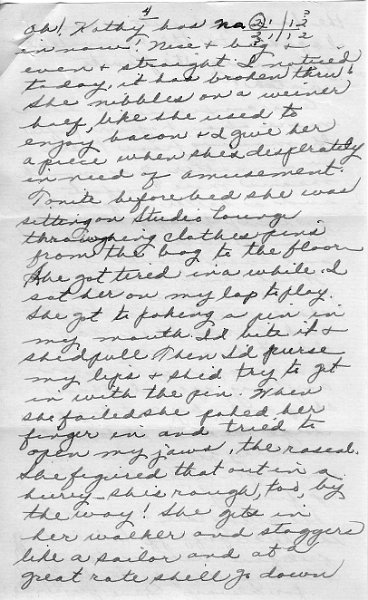 4
Oh! Kathy has no 2 1 / 1 2
in now! Nice & big & 2 1 / 1 2
even & straight. I noticed
today, it has broken thru!
She nibbles on a weiner
half, like she used to
enjoy bacon & I give her
a piece when she's desperately
in need of amusement.
Tonite before bed she was
sitting on Studio Lounge
throwing clothes pins
from the bag to the floor.
She got tired in a while. I
sat her on my lap to play.
She got to poking a pin in
my mouth. I'd bite it &
she'd pull. Then I'd purse
my lips & she'd try to get
in with the pin. When
she failed she poked her
finger in and tried to
open my jaws, the rascal.
She figured that out in a
hurry - she's rough, too, by
the way! She gets in
her walker and staggers
like a sailor and at a
great rate she'll go down